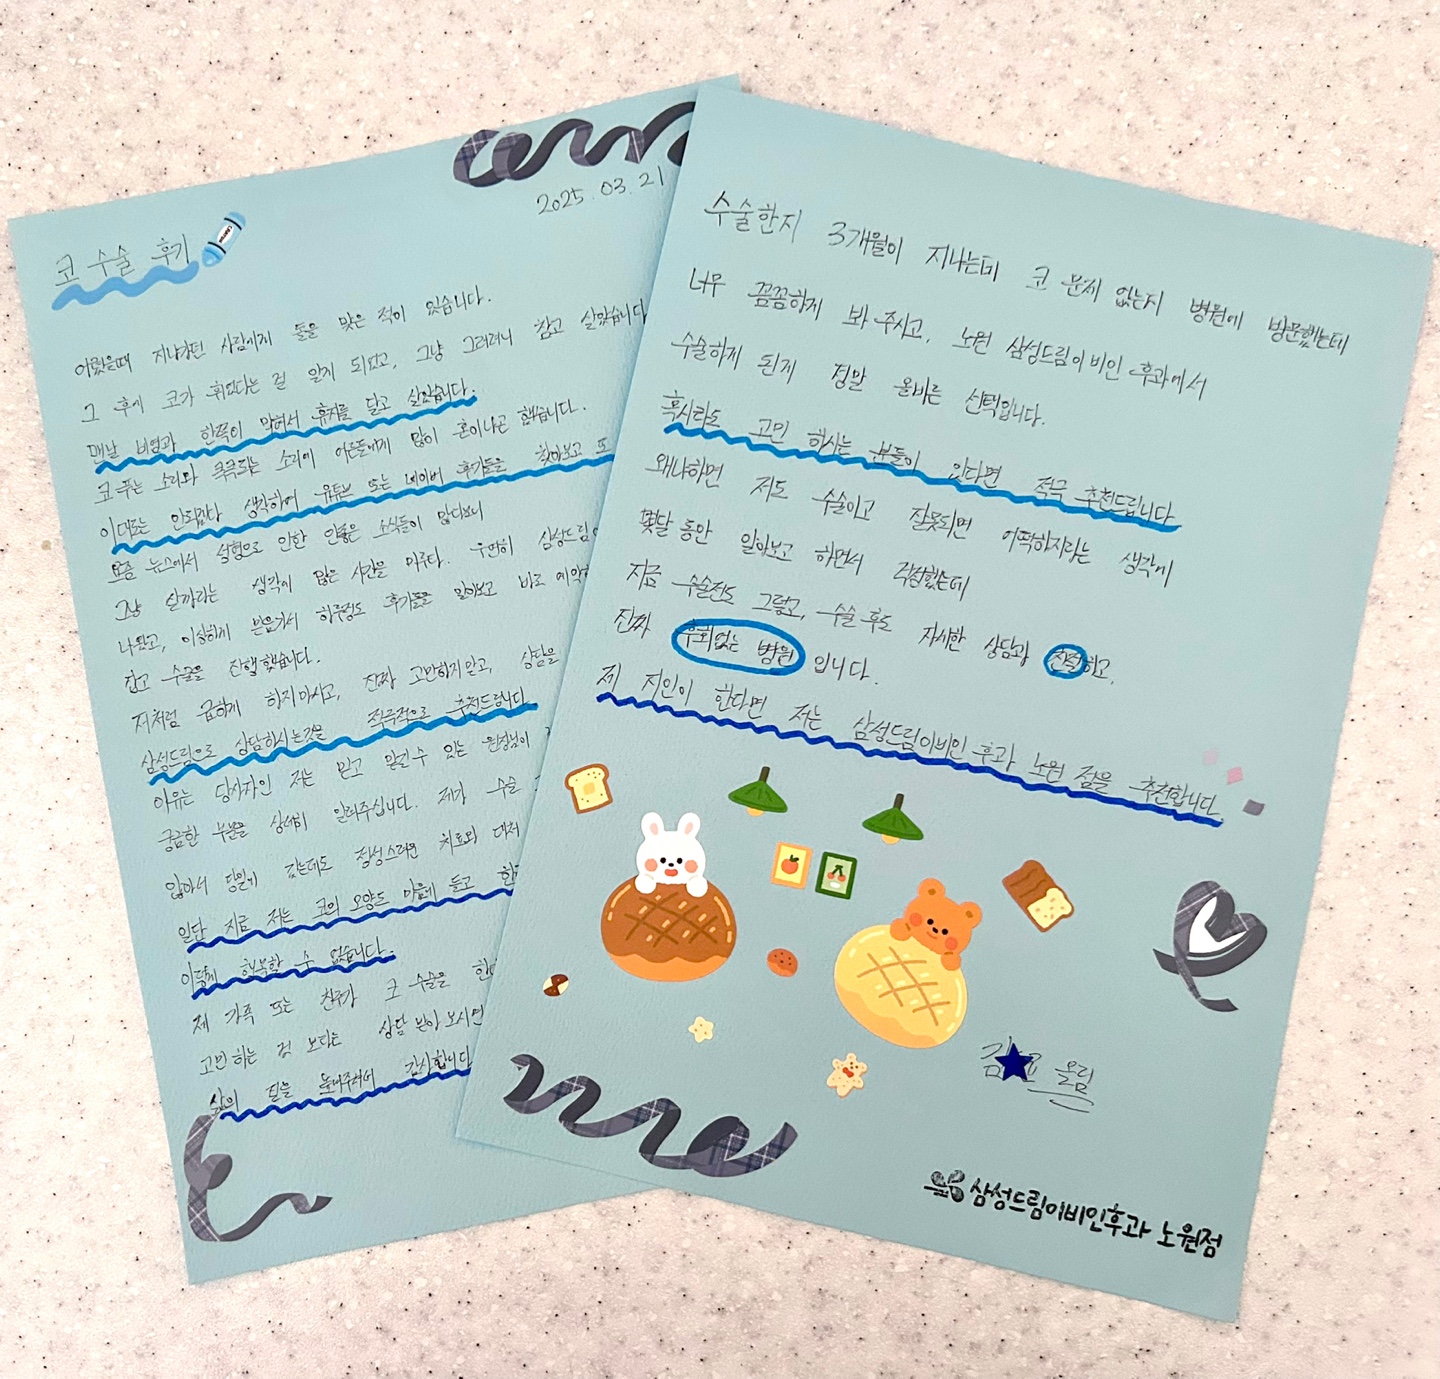 2025.03.21
코 수술 후기
어렸을때 지나가던 사람에게 돌을 맞은 적이 있습니다.
그 후에 코가 휘었다는 걸 알게 되었고, 그냥 그러려니 참고 살았습니다
맨날 비염과 한쪽이 막혀서 휴지를 달고 살았습니다.
코 푸는 소리와 킁킁되는 소리에 어른들에게 많이 혼이나곤 했습니다.
이대로는 안되겠다 생각하여 유튜브 또는 네이버 후기들을 찾아보고 또
요즘 뉴스에서 성형으로 인한 안좋은 소식들이 많다보니
그냥 살까라는 생각에 많은 시간을 미루다. 우연히 삼성드림
나왔고, 이상하게 믿음가서 하루정도 후기들을 알아보고 바로 예약
잡고 수술을 진행했습니다.
저처럼 급하게 하지마시고, 진짜 고민하지말고, 상담을
삼성드림으로 상담하시는것을 적극적으로 추천드립니다.
이유는 당사자인 저는 믿고 맡길수 있는 원장님이
궁금한 부분을 상세히 알려주십니다. 제가 수술
않아서 당일에 갔는데도 정성스러운 치료와 대처
일단 지금 저는 코의 모양도 마음에 들고
이렇게 행복할 수 없습니다.
제 가족 또는 친구가 코 수술을
고민하는 것 보다는 상담 받아 보시면
삶의 질을 감사합니다
수술한지 3개월이 지나는데 코 문제 없는지 병원에 방문했는데
너무 꼼꼼하게 봐 주시고, 노원 삼성드림이비인후과에서
수술하게 된게 정말 올바른 선택입니다.
혹시라도 고민 하시는 분들이 있다면 적극 추천드립니다
왜냐하면 저도 수술이고 잘못되면 어떡하지라는 생각에
몇달 동안 알아보고 하면서 걱정했는데
지금 수술전도 그렇고, 수술 후도 자세한 상담과 친절하고,
진짜 후회없는 병원 입니다.
제 지인이 한다면 저는 삼성드림이비인후과 노원 점을 추천합니다.
김 올림
삼성드림이비인후과 노원점